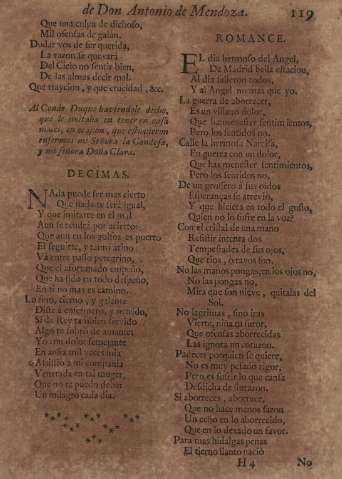 de Don Antonio de Mendoza. 119
Que una culpa de dichoso,
Mil ofensas de galan.
Dudar vos de ser querida,
La razon se quexará
Del Cielo no sentir bien,
De las almas decir mal.
Que traycion, y que crueldad, &c.
Al Conde Duque haviendole dicho,
que le imitaba en tener en casa
males, en ocasion, que estuvieron
enfermas mi Señora la Condesa,
y mi señora Doña Clara.
DECIMAS.
NAda puede ser mas cierto
Que nada te será igual,
Y que imitarte en el mal
Aun se tendrá por acierto:
Que aun en los golfos es puerto
El seguirte, y tanto atino
Vá entre passo peregrino,
Que el afortunado empeño,
Que ha sido en todo despeño,
En ti no mas es camino.
Lo fino, tierno, y galante
Diste á entender, y
Si de Rey tambien servido
Algo te sobró de amante:
Yo un dolor semejante
En
Assisto á mi compañia
Venerada en tal muger,
Que no te puedo deber
Un milagro cada dia.
ROMANCE.
EL dia hermoso del Angel,
De Madrid bella estacion,
Al dia salieron todos,
Y al Angel no mas que yo.
La guerra de aborrecer,
Es un villano dolor,
Que ha menester sentimientos,
Pero los sentidos no.
Calle la hermosa Narcisa,
En guerra con un dolor,
Que has menester sentimientos,
Pero los sentidos no.
De un grossero á sus oidos
Esperanzas se atrevió,
Y que alhaja en todo el gusto,
Quien no lo sufre en la voz?
Con el cristal de una mano
Resistir intenta dos
Tempestades de sus ojos,
Que rios, ó rayos son.
No las manos pongas, en los ojos no,
No las pongas no,
Mira que son nieve, quitalas del
Sol.
No lagrimas, sino iras
Vierte, niña tu furor,
Que ofensas aborrecidas
Las ignora un corazon.
Padecer porque se quiere,
No es muy pesado rigor,
Pero es sufrir lo que cansa
Desdicha de sinrazon.
Si aborreces, aborrece,
Que no hace menos sazon
Un ceño en lo aborrecido,
Que en lo dexado un favor.
Para mas hidalgas penas
El tierno llanto nació
H 4 No